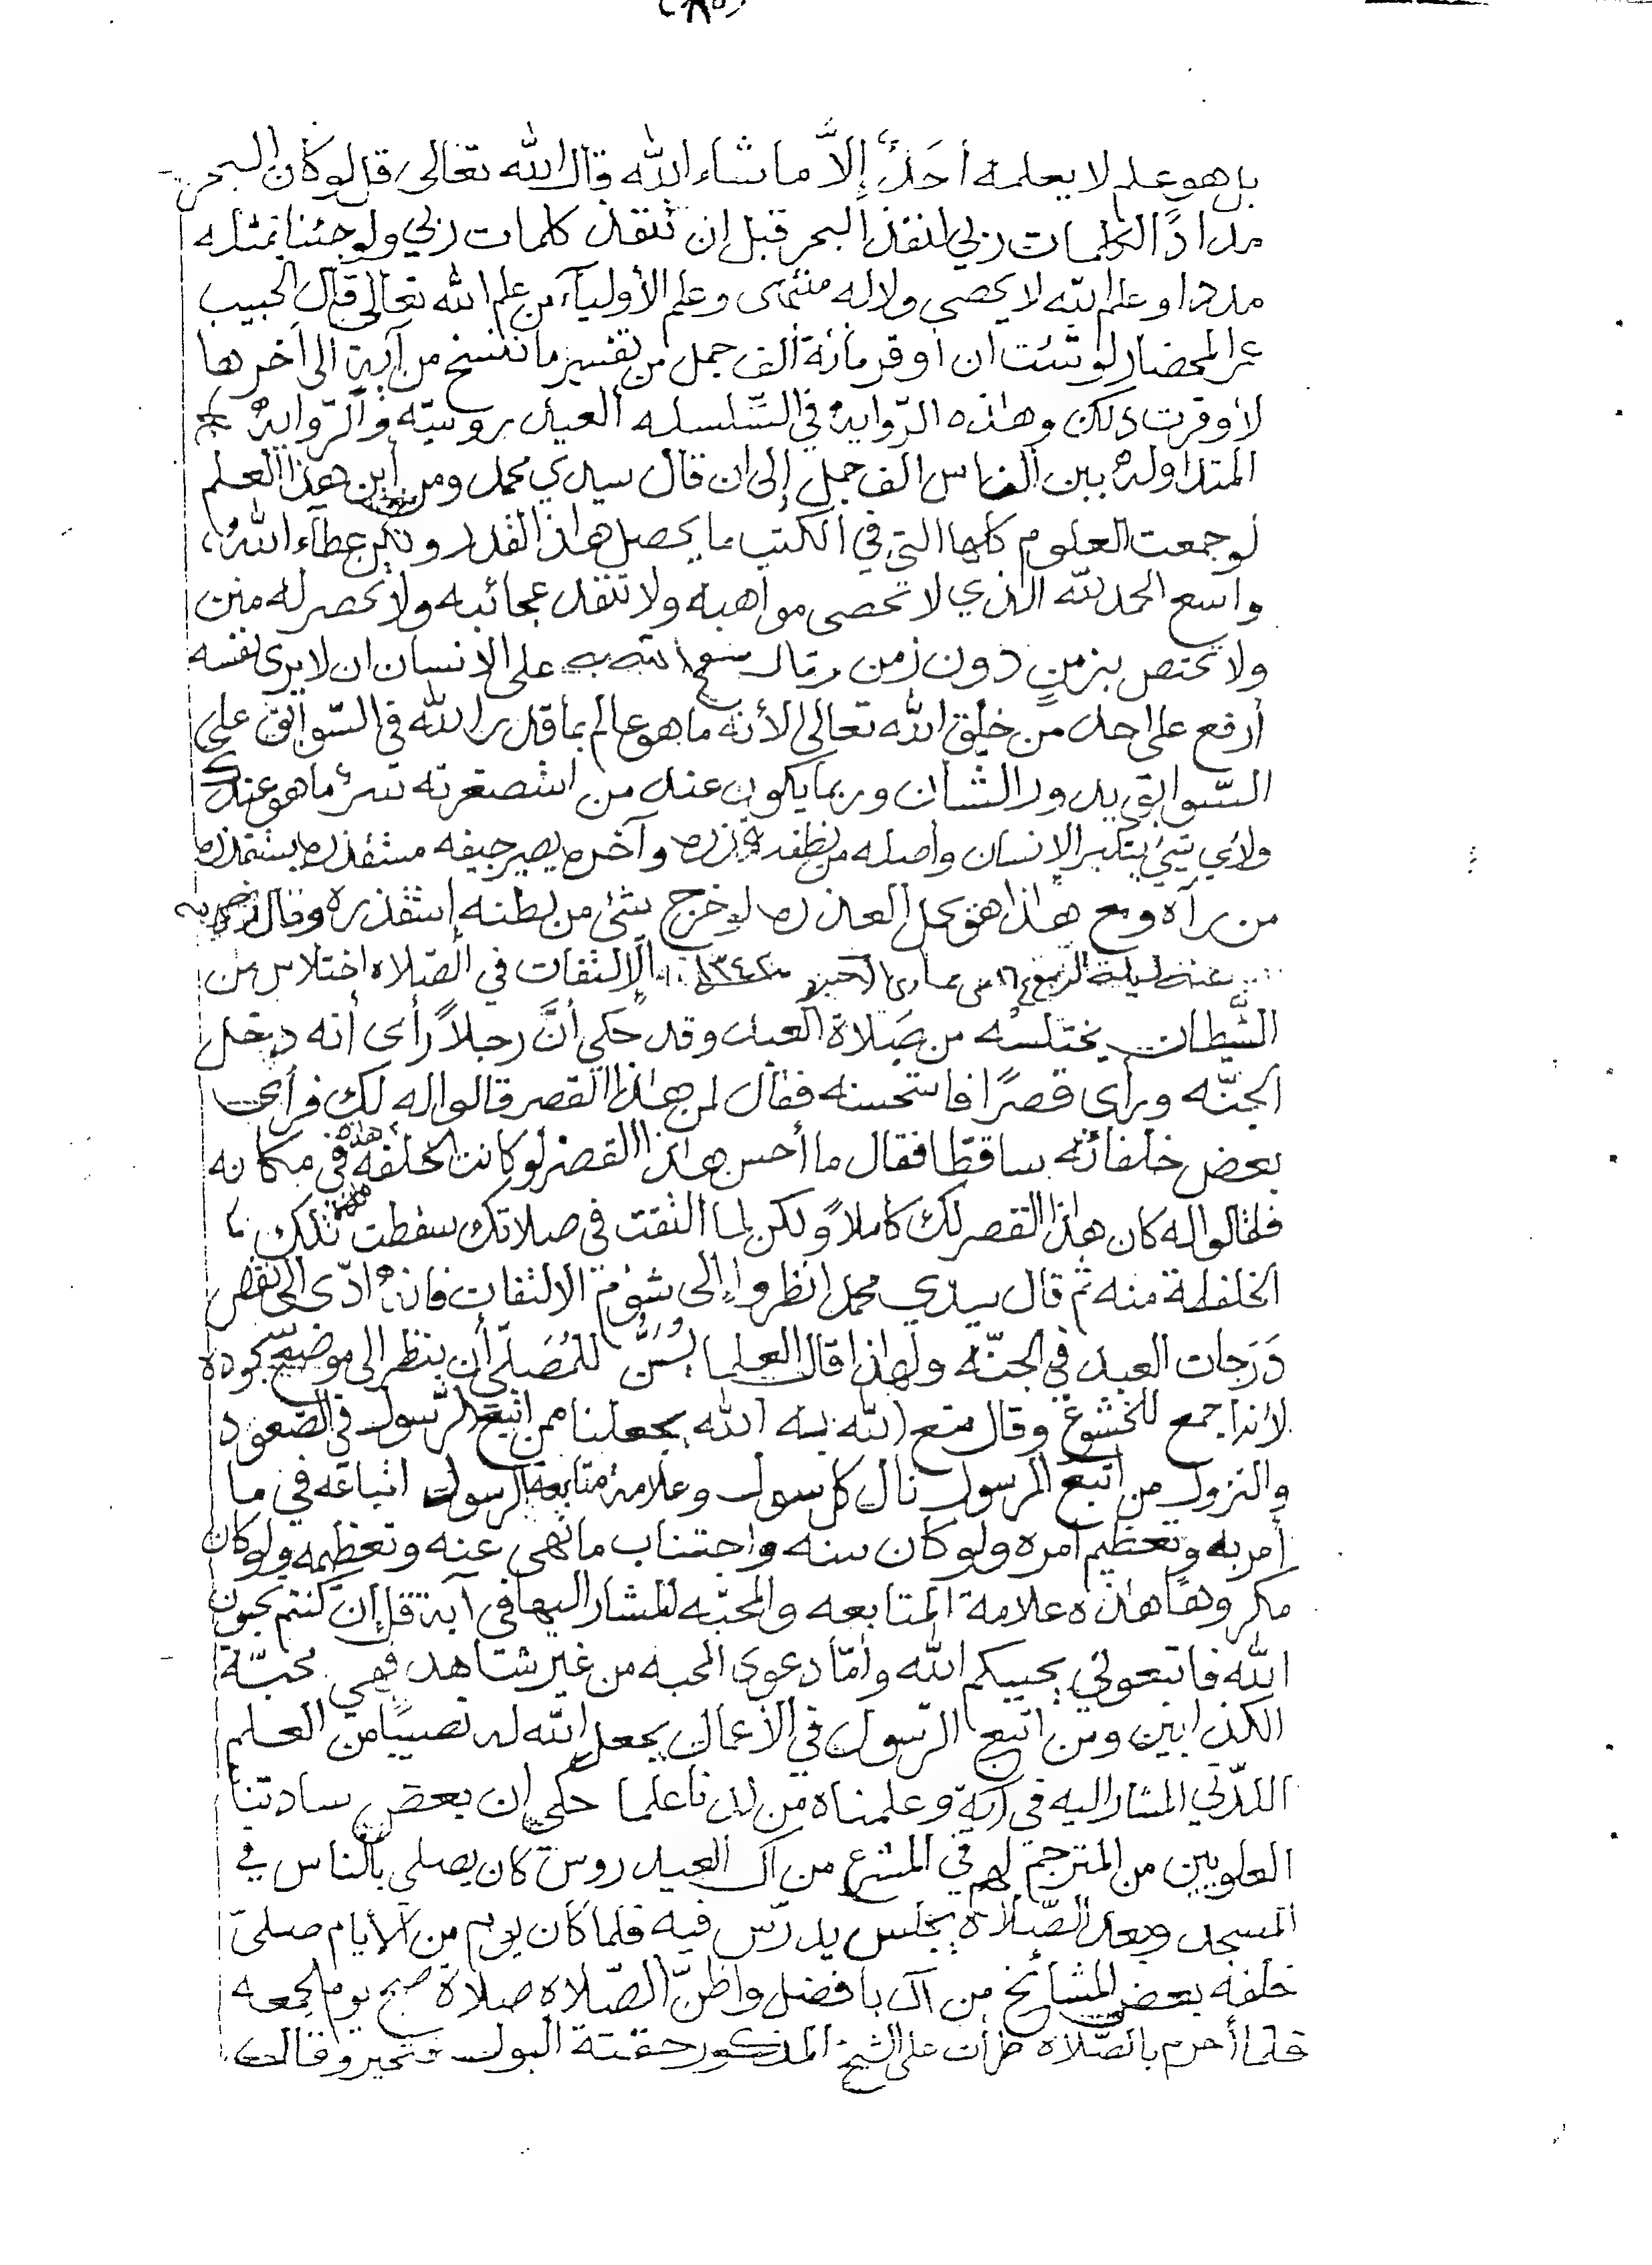 بل هو علم لا يعلمه أحَدٌ إلاَّ ما شاء الله قال الله تعالى قل لو كان البحر
مدادًا لكلمات ربي لنفذ البحر قبل ان تنفذ كلمات ربي ولو جئنا بمثله
مددا وعلم الله لا يحصى ولا له منتهى وعلم الأولياء من علم الله تعالى قال الحبيب
عمر المحضار لو شئت ان أوقر مائة ألف جمل من تفسير ما ننسخ من آية الى أخرها
لأوقرت ذلك وهاذه الرّواية في السّلسله العيدروسيّه والرّواية
المتداولة بين الناس الف جمل إلى ان قال سيدي محمد ومن أين هذا العلم
لو جمعت العلوم كلها التي في الكتب ما يحصل هاذا القدر ولكن عطآء اللهُ
واسع الحمد لله الذي لا تحصى مواهبه ولا تنفد عجائبه ولا تحصر له منن
ولا تختص بزمنٍ دون زمن وقال متع الله به على الإنسان ان لا يرى نفسه
أرفع على احد من خلق الله تعالى لأنه ما هو عالم بما قدر الله في السّوابق على
السّوابق يدور الشان وربما يكون عند من استصغرته سرٌ ما هو عندك
ولأي شيٍ يتكبر الإنسان وأصله من نطفه قذره وآخره يصير جيفه مستقذره يستقذره
من رآه ومع هاذا هو يحمل العذره لو خرج شئ من بطنه إستقذره وقال رضي
عنه ليلة الربوع ١٦ من جمادى الأخير ١٣٤٢ الإلتفات في الصّلاه اختلاس من
الشَّيطان يختلسُه من صَلاة العبد وقد حكي أنَّ رجلاً رأى أنه دخل
الجنّه ورأى قصرًا فاستحسنه فقال لمن هاذا القصر قالوا له لك فرأى
بعض خلفاته ساقطا فقال ما أحسن هاذا القصر لو كانت هاذه الخلفه في مكانه
فقالوا له كان هاذا القصر لك كاملاً ولكن لما التفت في صلاتك سقطت تلك
الخلفة منه ثم قال سيدي محمد انظروا إلى شؤم الالتفات فانه ادّى الى نقص
دَرَجات العبد في الجنّه ولهاذا قال العلما يُسَنُّ للمُصَلّي أن ينظر الى موضع سجوده
لأنه اجمع للخشوع وقال متع الله به الله يجعلنا ممن اتبع الرّسول في الصّعود
والنزول من اتبع الرسول نال كل سول وعلامة متابعة الرسول اتباعه في ما
أمر به وتعظيم أمره ولو كان سنه واجتناب ما نهى عنه وتعظيمه ولو كان
مكروهًا هاذه علامة المتابعه والمحبّه المشار اليها في آية قل إن كنتم تحبون
الله فاتبعوني يحببكم الله وأمّا دعوى المحبه من غير شاهد فهي محبّة
الكذابين ومن اتبع الرّسول في الأعمال يجعل الله له نصيبًا من العلم
اللدّني المشار اليه في آية وعلمناه من لدنا علما حكي ان بعض سادتنا
العلويين من المترجم لهم في المشرع من آل العيدروس كان يصلي بالناس في
المسجد وبعد الصّلاة يجلس يدرّس فيه فلما كان يوم من الأيام صلىّ
خلفه بعض المشائخ من آل بافضل واظنّ الصّلاه صلاة صبح يوم الجمعه
فلما أحرم بالصّلاه طرأت على الشيخ المذكور حقنة البول فتحير وقال